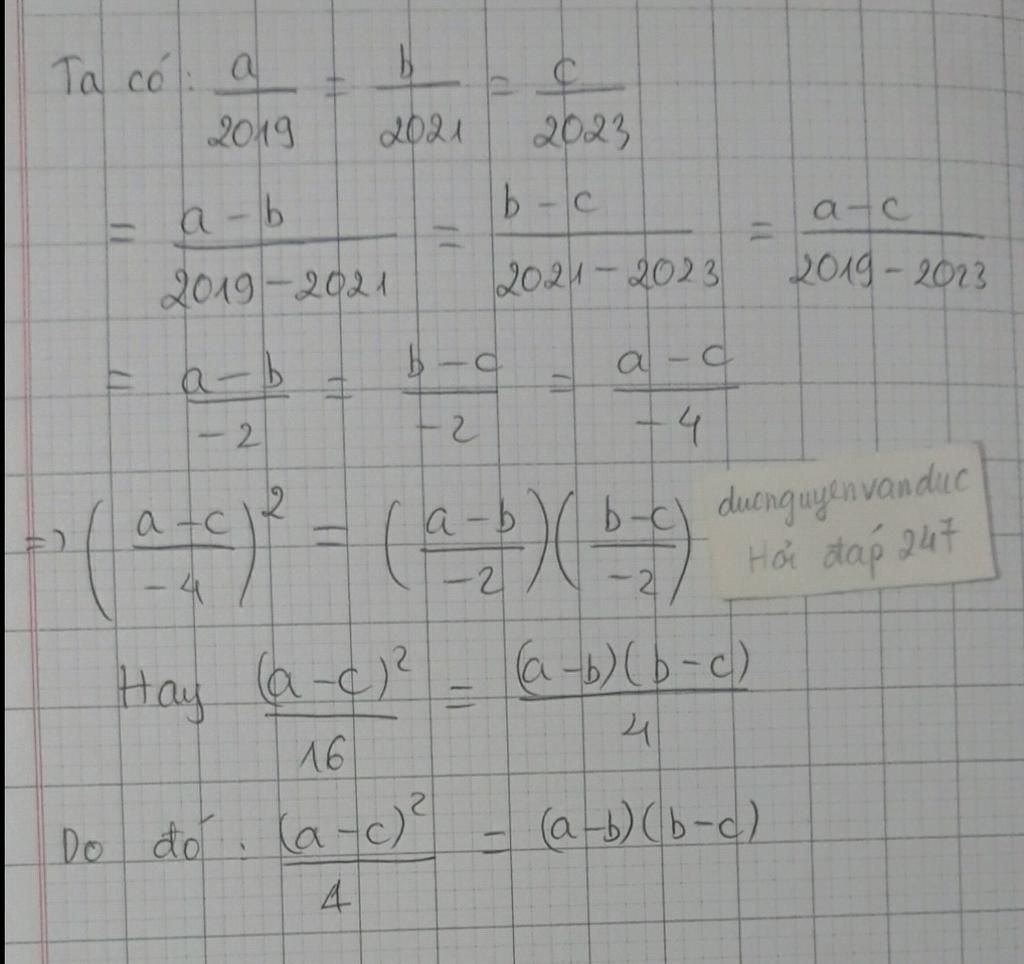 Ta có: a/2019 = b/2021 = c/2023
= (a-b)/(2019-2021) = (b-c)/(2021-2023) = (a-c)/(2019-2023)
= (a-b)/-2 = (b-c)/-2 = (a-c)/-4
=> ((a-c)/-4)² = ((a-b)/-2)((b-c)/-2)
ducnguyenvanduc
Hỏi đáp 247
Hay (a-c)²/16 = (a-b)(b-c)/4
Do đó: (a-c)²/4 = (a-b)(b-c)